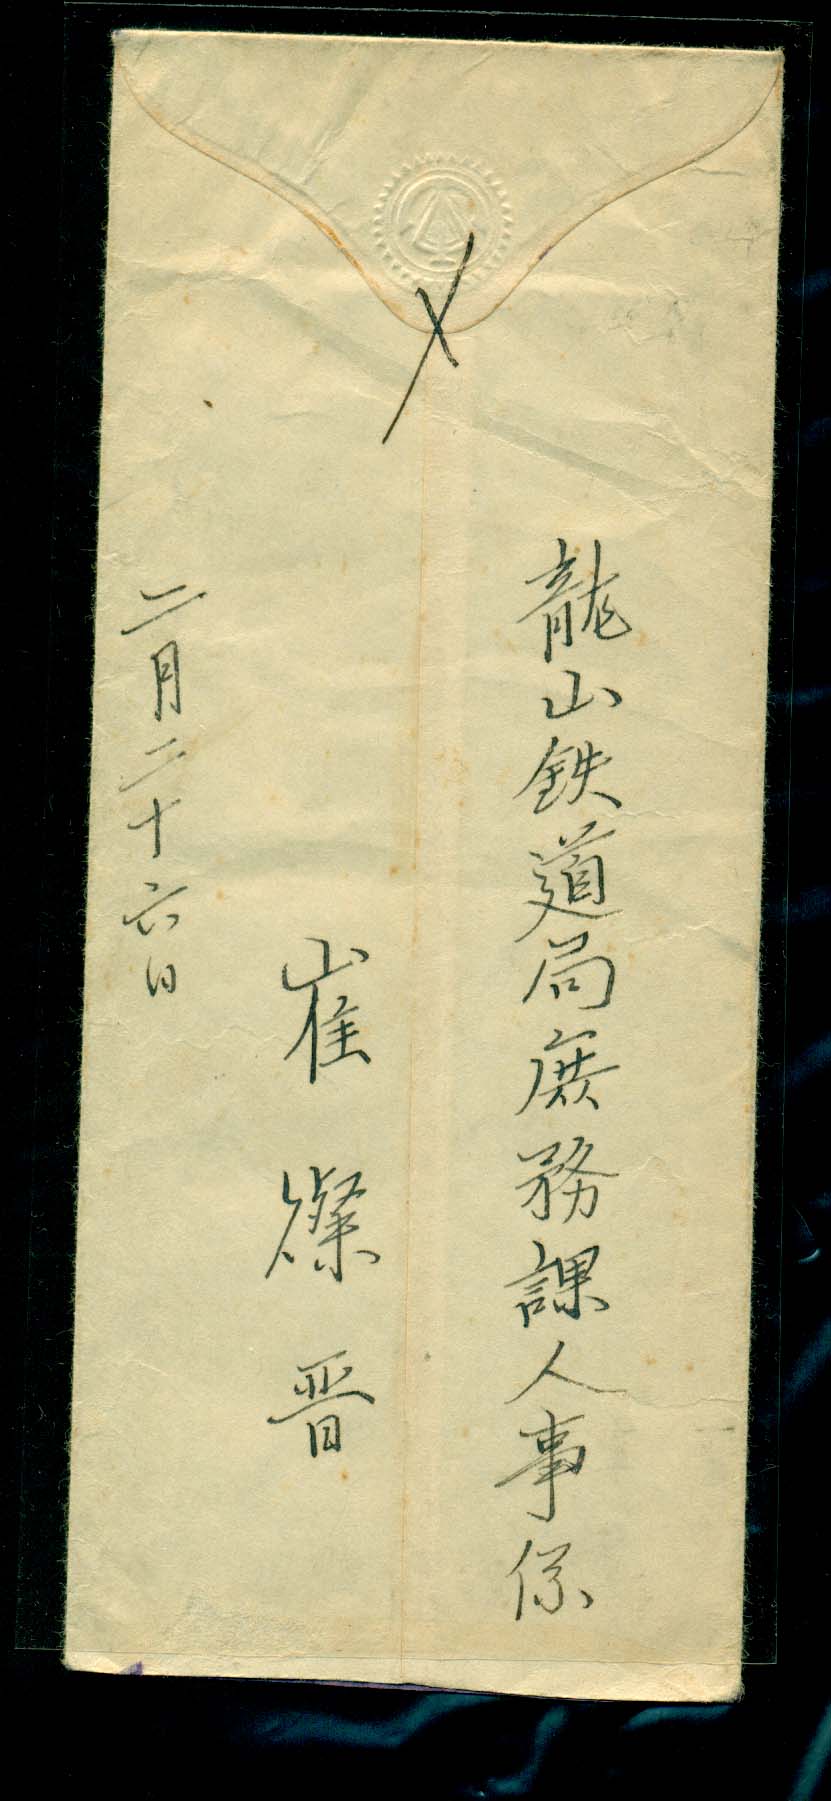 龍山鉄道局庶務課人事係
崔燦晋
二月二十六日